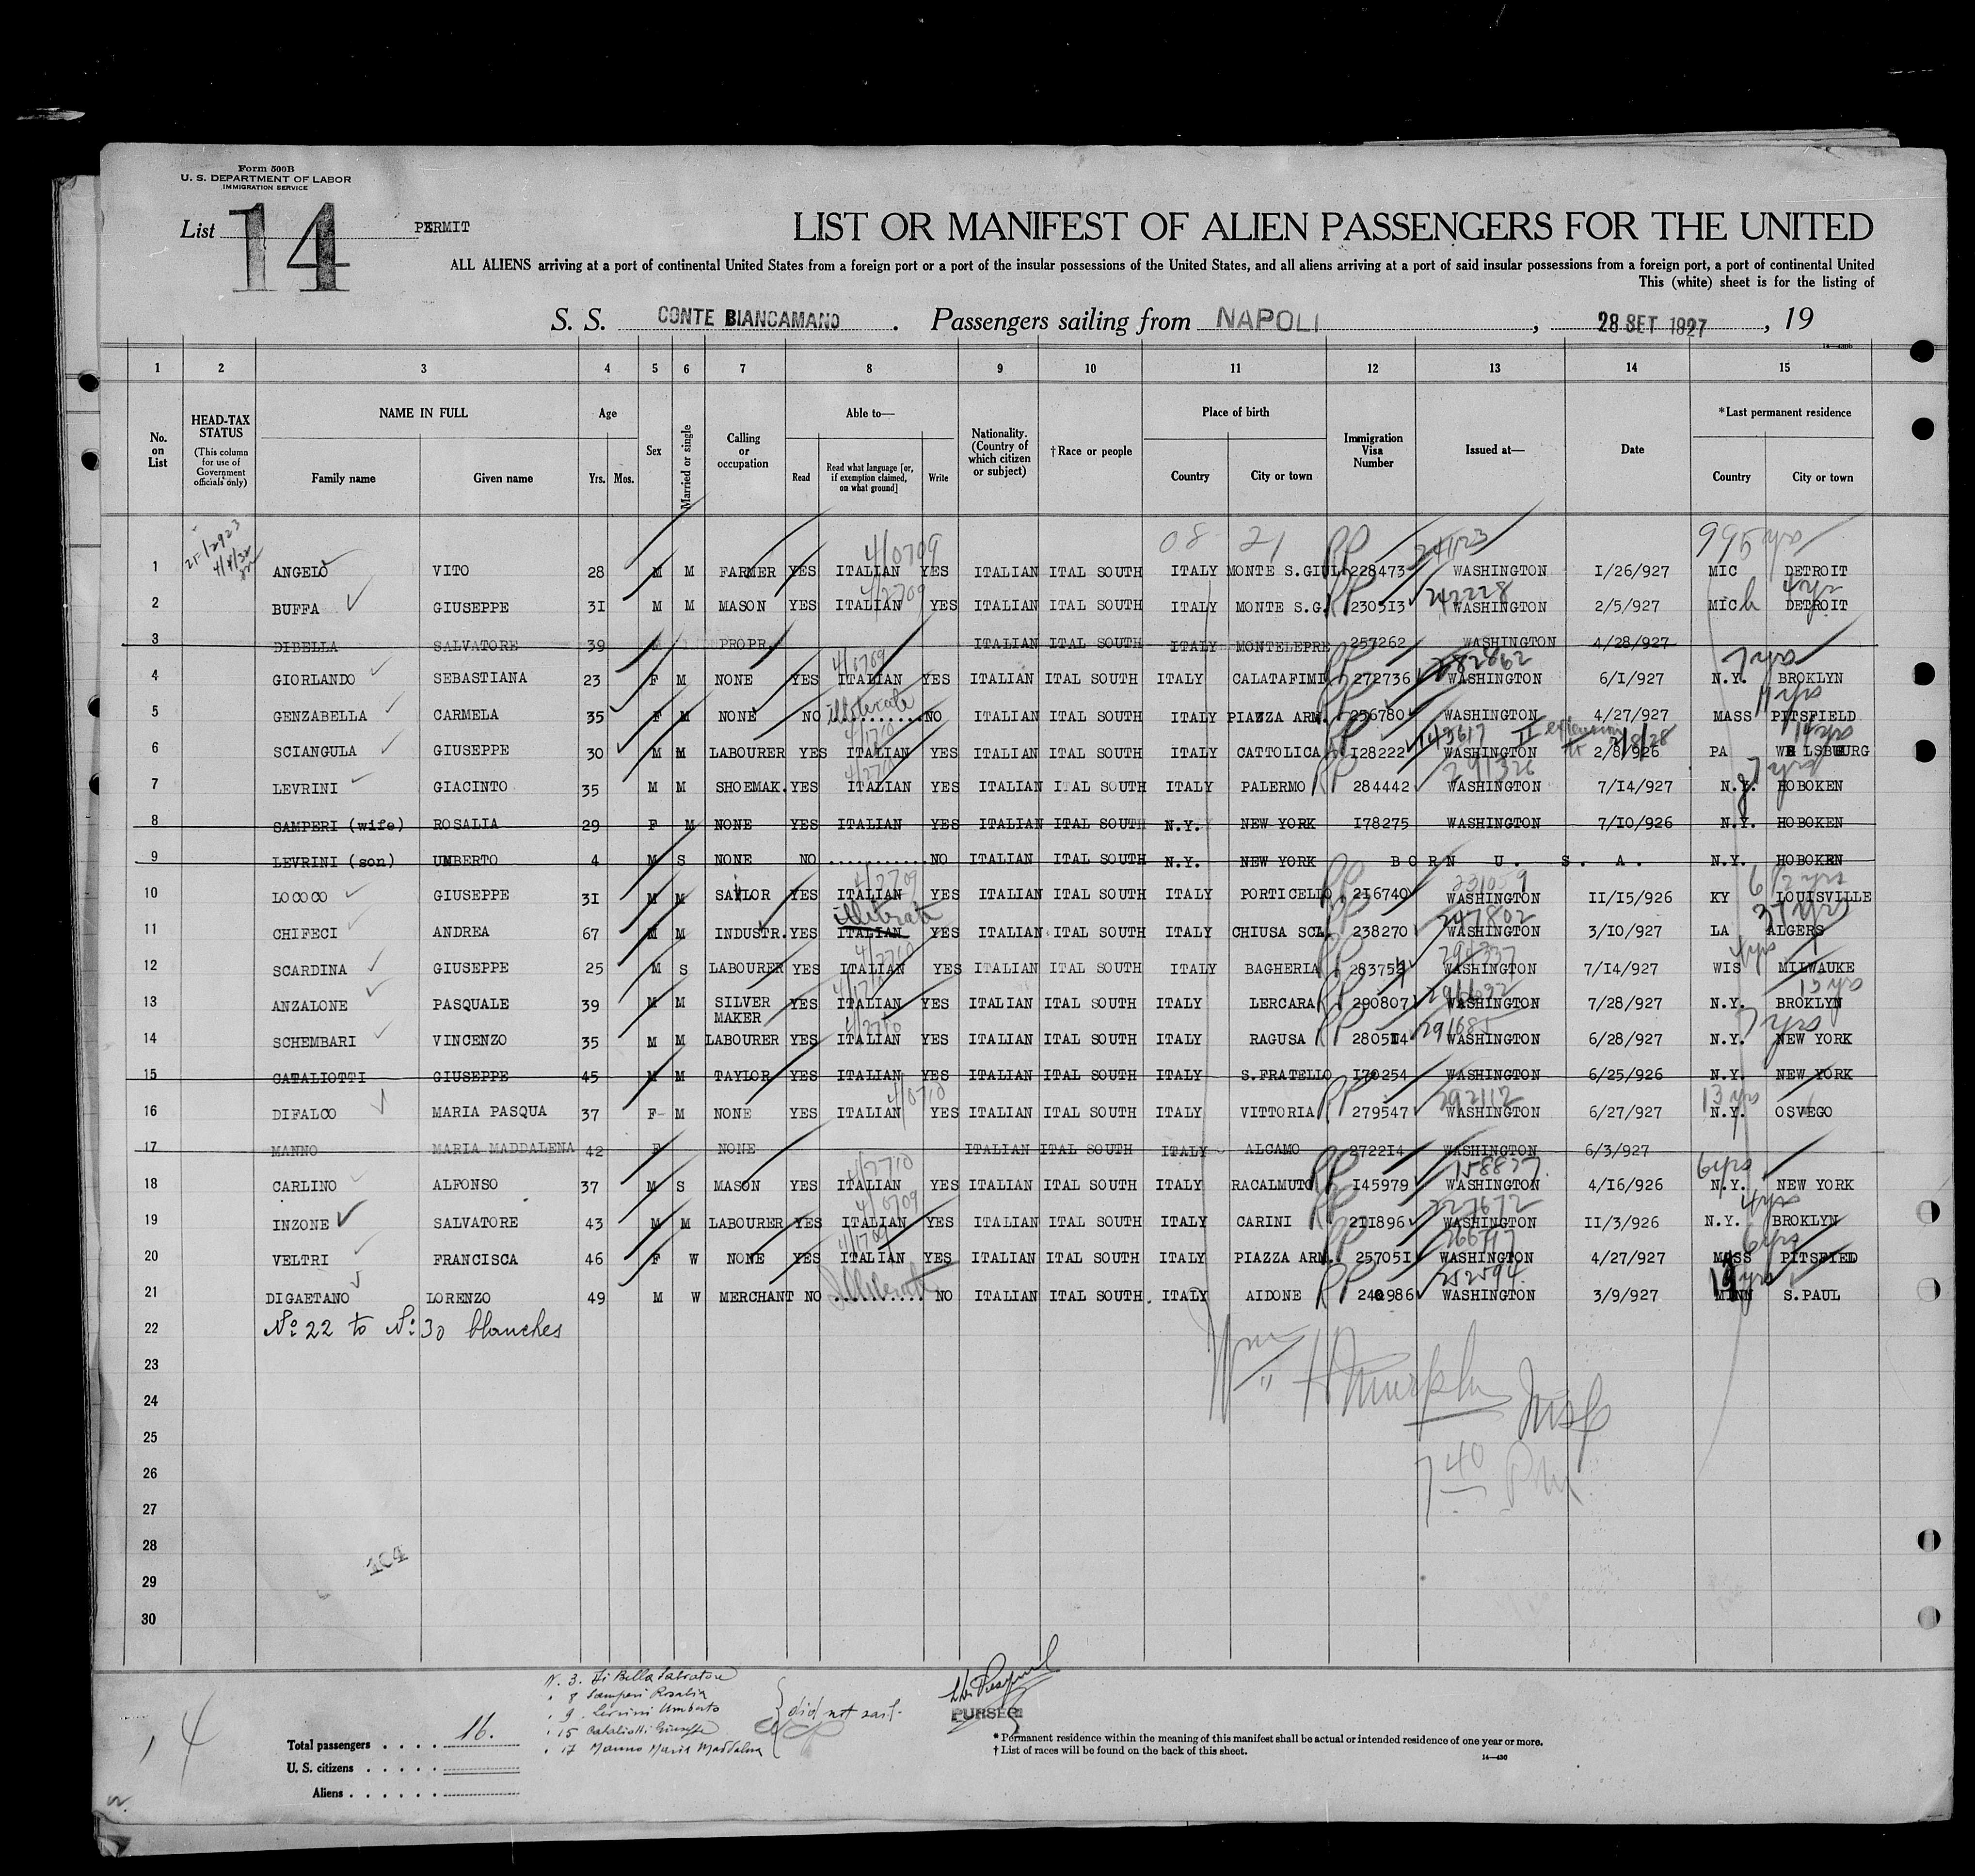 Form 500B
U. S. DEPARTMENT OF LABOR
IMMIGRATION SERVICE
List 14 PERMIT
LIST OR MANIFEST OF ALIEN PASSENGERS FOR THE UNITED
ALL ALIENS arriving at a port of continental United States from a foreign port or a port of the insular possessions of the United States, and all aliens arriving at a port of said insular possessions from a foreign port, a port of continental United
This (white) sheet is for the listing of
S. S. CONTE BIANCAMANO . Passengers sailing from NAPOLI , 28 SET 1927 , 19
1 2 3 4 5 6 7 8 9 10 11 12 13 14 15
No. on List
HEAD-TAX STATUS (This column for use of Government officials only)
NAME IN FULL Family name Given name
Age Yrs. Mos.
Sex
Married or single
Calling or occupation
Able to— Read Read what language [or, if exemption claimed, on what ground] Write
Nationality. (Country of which citizen or subject)
†Race or people
Place of birth Country City or town
Immigration Visa Number
Issued at—
Date
*Last permanent residence Country City or town
08 21 995
1 ANGELO VITO 28 M M FARMER YES ITALIAN 4/0709 YES ITALIAN ITAL SOUTH ITALY MONTE S.GIUL 228473 WASHINGTON I/26/927 MIC DETROIT
2 BUFFA GIUSEPPE 3I M M MASON YES ITALIAN 4/2709 YES ITALIAN ITAL SOUTH ITALY MONTE S.G. 2305I3 242228 WASHINGTON 2/5/927 MICh DETROIT 4yrs
3 DIBELLA SALVATORE 39 M PROPR. ITALIAN ITAL SOUTH ITALY MONTELEPRE 257262 WASHINGTON 4/28/927
4 GIORLANDO SEBASTIANA 23 F M NONE YES ITALIAN 4/0709 YES ITALIAN ITAL SOUTH ITALY CALATAFIMI 272736 282862 WASHINGTON 6/I/927 N.Y. BROKLYN 7yrs
5 GENZABELLA CARMELA 35 F M NONE NO illiterate NO ITALIAN ITAL SOUTH ITALY PIAZZA ARM. 256780 WASHINGTON 4/27/927 MASS PITSFIELD
6 SCIANGULA GIUSEPPE 30 M M LABOURER YES ITALIAN 4/1710 YES ITALIAN ITAL SOUTH ITALY CATTOLICA I28222 143617 WASHINGTON II extension to 2/8/28 2/8/926 PA
7 LEVRINI GIACINTO 35 M M SHOEMAK. YES ITALIAN YES ITALIAN ITAL SOUTH ITALY PALERMO 284442 291326 WASHINGTON 7/I4/927 N.J. HOBOKEN 7yrs
8 SAMPERI (wife) ROSALIA 29 F M NONE YES ITALIAN YES ITALIAN ITAL SOUTH N.Y. NEW YORK I78275 WASHINGTON 7/I0/926 N.Y. HOBOKEN
9 LEVRINI (son) UMBERTO 4 M S NONE NO ........... NO ITALIAN ITAL SOUTH N.Y. NEW YORK BORN U. S. A. N.Y. HOBOKEN
10 LOCOCO GIUSEPPE 3I M M SAILOR YES ITALIAN 4/2709 YES ITALIAN ITAL SOUTH ITALY PORTICELLO 2I6740 231059 WASHINGTON II/I5/926 KY LOUISVILLE
11 CHIFECI ANDREA 67 M M INDUSTR. YES ITALIAN illiterate YES ITALIAN ITAL SOUTH ITALY CHIUSA SCL. 238270 247802 WASHINGTON 3/I0/927 LA ALGERS
12 SCARDINA GIUSEPPE 25 M S LABOURER YES ITALIAN 4/2710 YES ITALIAN ITAL SOUTH ITALY BAGHERIA WASHINGTON 7/I4/927 WIS MILWAUKE 4yrs
13 ANZALONE PASQUALE 39 M M SILVER MAKER YES ITALIAN YES ITALIAN ITAL SOUTH ITALY LERCARA 290807 WASHINGTON 7/28/927 N.Y. BROKLYN
14 SCHEMBARI VINCENZO 35 M M LABOURER YES ITALIAN 4/2710 YES ITALIAN ITAL SOUTH ITALY RAGUSA 2805I4 291685 WASHINGTON 6/28/927 N.Y. NEW YORK
15 CATALIOTTI GIUSEPPE 45 M M TAYLOR YES ITALIAN YES ITALIAN ITAL SOUTH ITALY S.FRATELLO I70254 WASHINGTON 6/25/926 N.Y. NEW YORK
16 DIFALCO MARIA PASQUA 37 F M NONE YES ITALIAN 4/0710 YES ITALIAN ITAL SOUTH ITALY VITTORIA 279547 292112 WASHINGTON 6/27/927 N.Y. OSVEGO 13 yrs
17 MANNO MARIA MADDALENA 42 F NONE ITALIAN ITAL SOUTH ITALY ALCAMO 2722I4 WASHINGTON 6/3/927
18 CARLINO ALFONSO 37 M S MASON YES ITALIAN 4/2710 YES ITALIAN ITAL SOUTH ITALY RACALMUTO I45979 158837 WASHINGTON 4/I6/926 N.Y. NEW YORK 6yrs
19 INZONE SALVATORE 43 M M LABOURER YES ITALIAN 4/0709 YES ITALIAN ITAL SOUTH ITALY CARINI 2II896 227672 WASHINGTON II/3/926 N.Y. BROKLYN 4yrs
20 VELTRI FRANCISCA 46 F W NONE YES ITALIAN 4/1709 YES ITALIAN ITAL SOUTH ITALY PIAZZA ARM. 25705I 266717 WASHINGTON 4/27/927 MASS PITSFIELD 6yrs
21 DIGAETANO LORENZO 49 M W MERCHANT NO Illiterate NO ITALIAN ITAL SOUTH. ITALY AIDONE 252594 WASHINGTON 3/9/927 MINN S.PAUL
22 No: 22 to No: 30 blanches
23
24 Wm H Murphy Insp
25
26 7 40 PM
27
28
29 104
30
N. 3. Di Bella Salvatore
" 8 Samperi Rosalia
" 9 Levrini Umberto
" 15 Cataliotti Giuseppe
" 17 Manno Maria Maddalena
did not sail.
PURSER
14
Total passengers . . . . 16.
U. S. citizens . . . . .
Aliens . . . . . .
* Permanent residence within the meaning of this manifest shall be actual or intended residence of one year or more.
† List of races will be found on the back of this sheet.
14—430